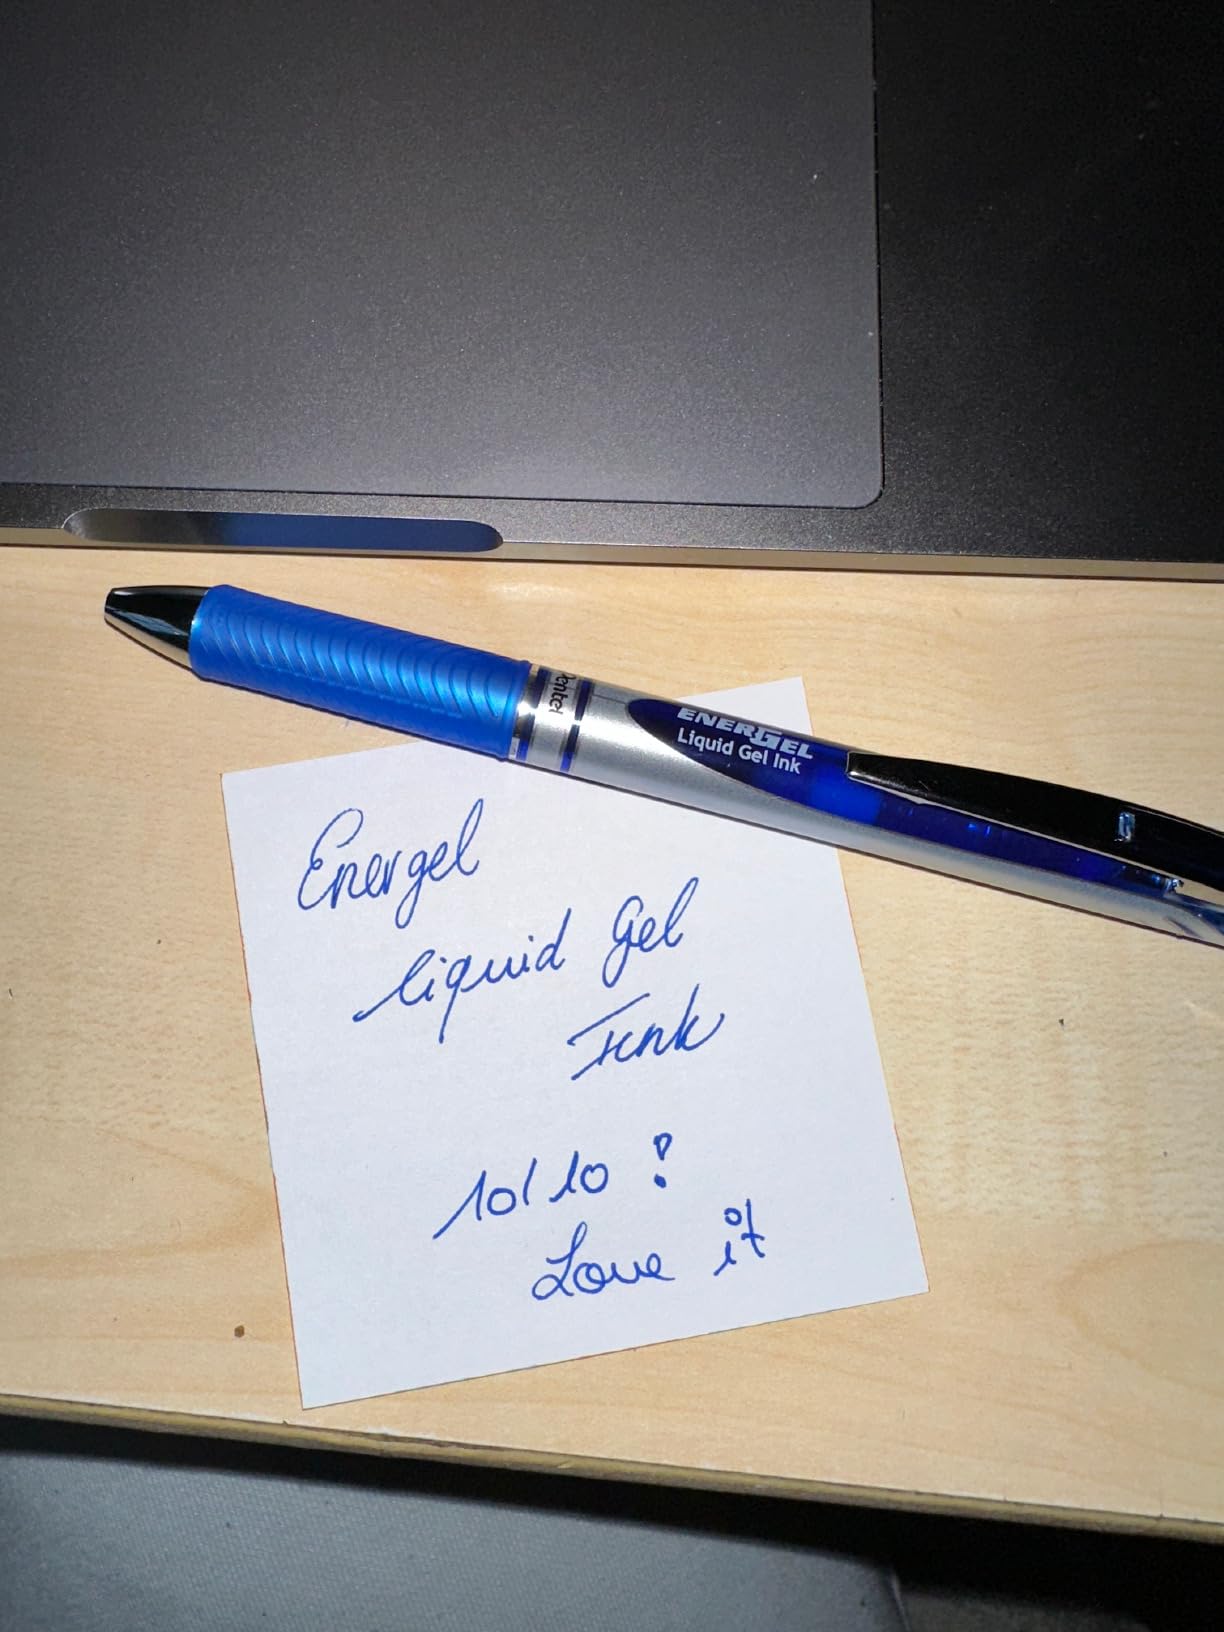 Pentel
ENERGEL
Liquid Gel Ink
Energel
liquid Gel
Ink
10/10 !
Love it